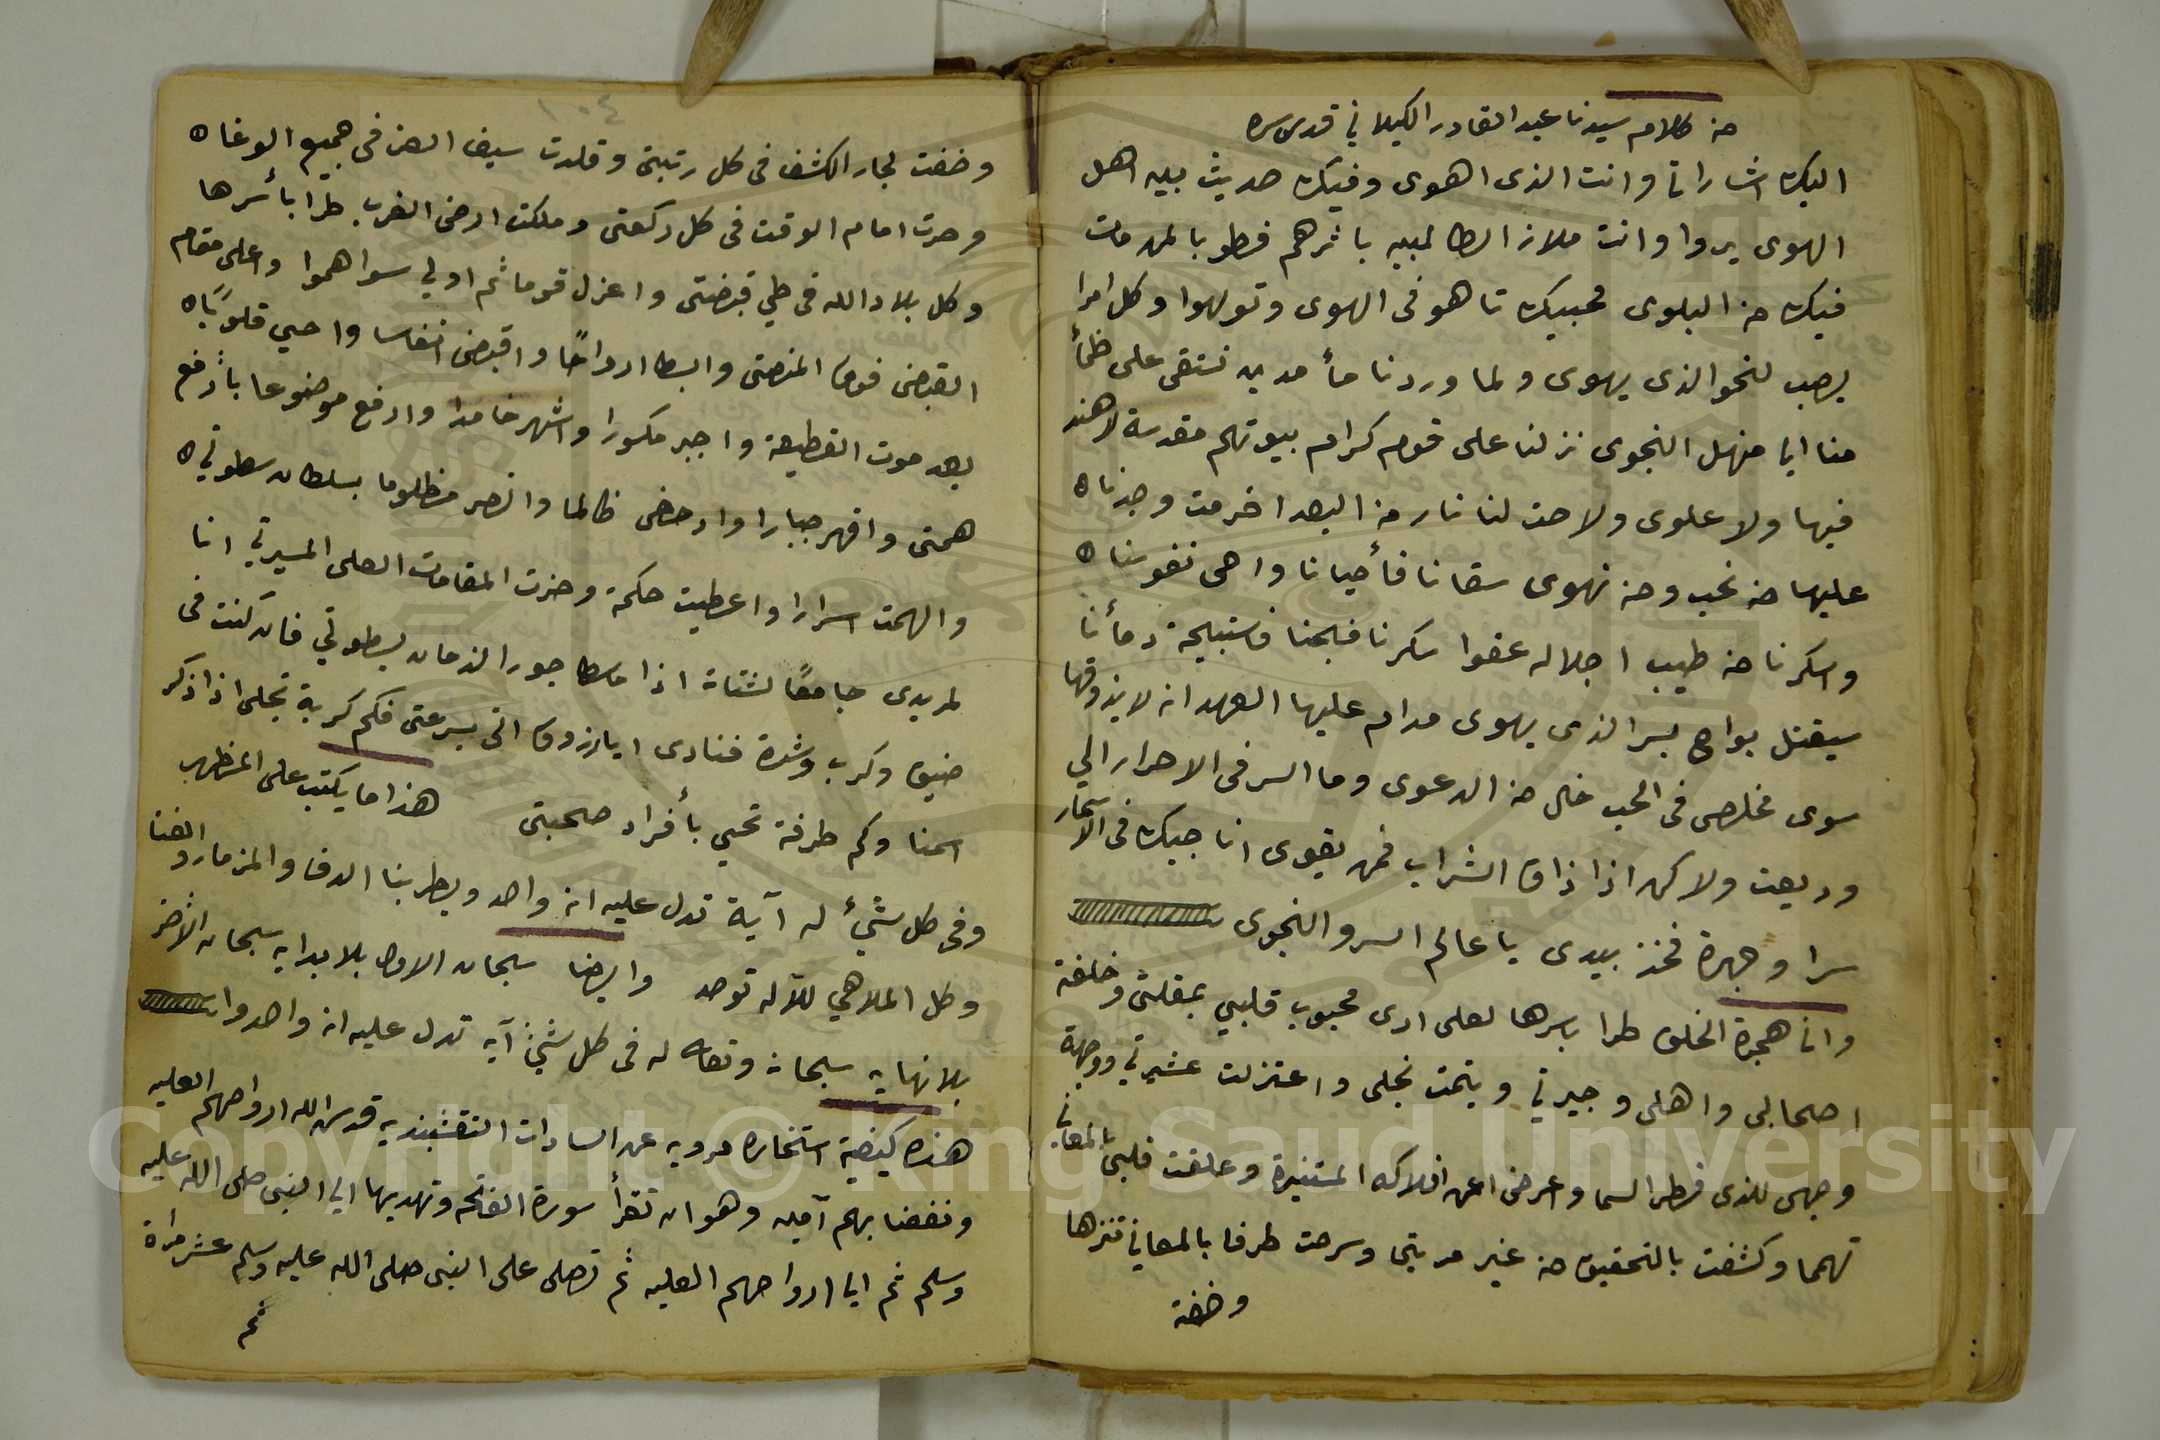 من كلام سيدنا عبد القادر الكيلاني قدس سره
اليك اشاراتي وانت الذى اهوى وفيك حديث بين اهل
الهوى يروا وانت ملاذ الطالبين باثرهم فطوبا لمن مات
فيك من البلوى محبيك تاهو فى الهوى وتولهوا وكل امرا
يصب لنحو الذى يهوى ولما وردنا مأ مدين نستقى على ظمأ
منا الى منهل النجوى نزلنا على قوم كرام بيوتهم مقدسة لا هند
فيها ولا علوى ولاحت لنا نار من البعد اضرمت وجدنا ه
عليها من نحب ومن نهوى سقانا فأحيانا واحى نفوسنا ه
واسكرنا من طيب اجلاله عفوا سكرنا فبحنا فاستبيحة دمأنا
سيقتل بواح بسر الذى يهوى مدام عليها العهد ان لا يذوقها
سوى مخلص فى الحب خال من الدعوى وما السر فى الاحرار الي
وديعت ولاكن اذا ذاق الشراب فمن يقوى اناجيك فى الاسحار
سرا وجهرة فخذ بيدى يا عالم السر والنجوى
وانا هجرة الخلق طرا باسرها لعلى ارى محبوب قلبي بمقلتى وخلفة
اصحابى واهلى وجيرتي ويتمت نجلى واعتزلت عشيرتي ووجهة
وجهى للذى فطر السما واعرض اعن افلاكه المستنيرة وعلقت قلبى بالمعاني
تهما وكشفت بالتحقيق من غير مريتى وسرحت طرفا بالمعاني تنزها
وخضة
١٠٤
وخضت بحار الكشف فى كل رتبتى وقلدت سيف العز فى جميع الوغا ه
وصرت امام الوقت فى كل ركعتى وملكت ارض الغرب طرا بأسرها
وكل بلاد الله فى طي قبضتى واعزل قوما ثم اولي سواهموا واعلى مقام
القبض فوق المنصتى وابسط ارواحًا واقبض انفاسا واحي قلوبًا ه
بعد موت القطيعة واجبر مكسورا واشهر خامدا وارفع موضوعا باثرفع
همتى واقهر جبارا وادحض ظالما وانصر مظلوما بسلطان سطوتي ه
والهمت اسرارا واعطيت حكمة وحزت المقامات العلى المسيرتي انا
لمريدى جامعًا لشتات اذا ماسطا جور الزمان بسطوتي فان كنت فى
ضيق وكرب وشدة فنادى ايازروق اتى بسرعتى فكم كربة تجلى اذا ذكر
اسمنا وكم طرفة تحي بأفراد صحبتى هذا ما يكتب على المظهر
وفى كل شئ له آية تدل عليه انه واحد ويطربنا الدف والمزمار والغنا
وكل الملاهي للآله توحد وايضا سبحان الاول بلا بدايه سبحان الأخر
بلا نهايه سبحانه وتعالى له فى كل شئ آيه تدل عليه انه واحدوا
هذه كيفية استخاره مرويه عن السادات النقشبنديه قدس الله ارواحهم العليه
ونفعنا بهم آمين وهو ان تقرأ سورة الفتحه وتهديها الى النبى صلى الله عليه
وسلم ثم ايا ارواحهم العليه ثم تصلى على النبى صلى الله عليه وسلم عشر مراة
ثم
Copyright © King Saud University